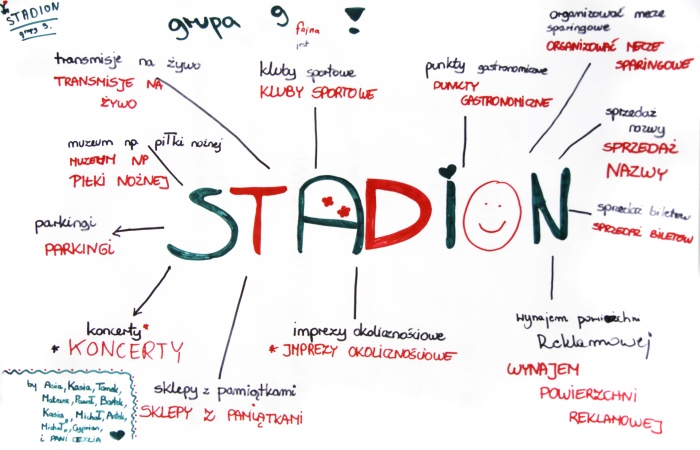 STADION
grupa 9 !
fajna
jest
transmisje na żywo
TRANSMISJE NA
ŻYWO
kluby sportowe
KLUBY SPORTOWE
punkty gastronomiczne
PUNKTY
GASTRONOMICZNE
organizować mecze
sparingowe
ORGANIZOWAĆ MECZE
SPARINGOWE
muzeum np piłki nożnej
MUZEUM NP
PIŁKI NOŻNEJ
sprzedaż
nazwy
SPRZEDAŻ
NAZWY
STADION
parkingi
PARKINGI
sprzedaż biletów
SPRZEDAŻ BILETÓW
koncerty*
* KONCERTY
imprezy okolicznościowe
* IMPREZY OKOLICZNOŚCIOWE
wynajem powierzchni
Reklamowej
WYNAJEM
POWIERZCHNI
REKLAMOWEJ
sklepy z pamiątkami
SKLEPY Z PAMIĄTKAMI
by Asia, Kasia, Tomek,
Mateusz, Paweł, Bartek,
Kasia, Michał, Antek,
Michał, Cyprian,
i PANI